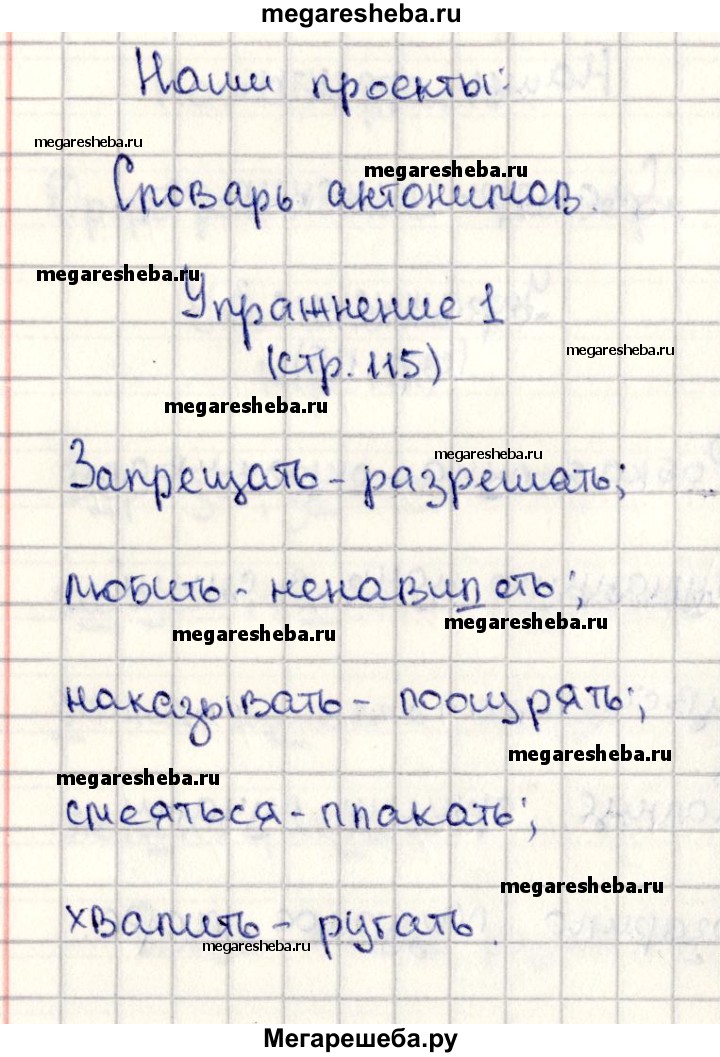 megaresheba.ru
Наши проекты:
megaresheba.ru
Словарь антонимов.
megaresheba.ru
megaresheba.ru
Упражнение 1
(стр. 115)
megaresheba.ru
megaresheba.ru
megaresheba.ru
Запрещать - разрешать;
любить - ненавидеть;
megaresheba.ru
megaresheba.ru
наказывать - поощрять;
megaresheba.ru
megaresheba.ru
смеяться - плакать;
megaresheba.ru
хвалить - ругать.
megaresheba.ru
Мегарешеба.ру